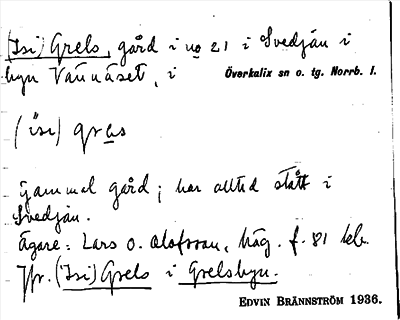 (Isi) Grels, gård i no 21 i Svedján i
byn Vännäset, i Överkalix sn o. tg. Norrb. l.
(ısı) gręs
gammal gård; har alltid stått i
Svedján.
Ägare: Lars O. Olofsson, häg. f. 81
Jfr. (Isi) Grels i Grelsbyn.
EDVIN BRÄNNSTRÖM 1936.